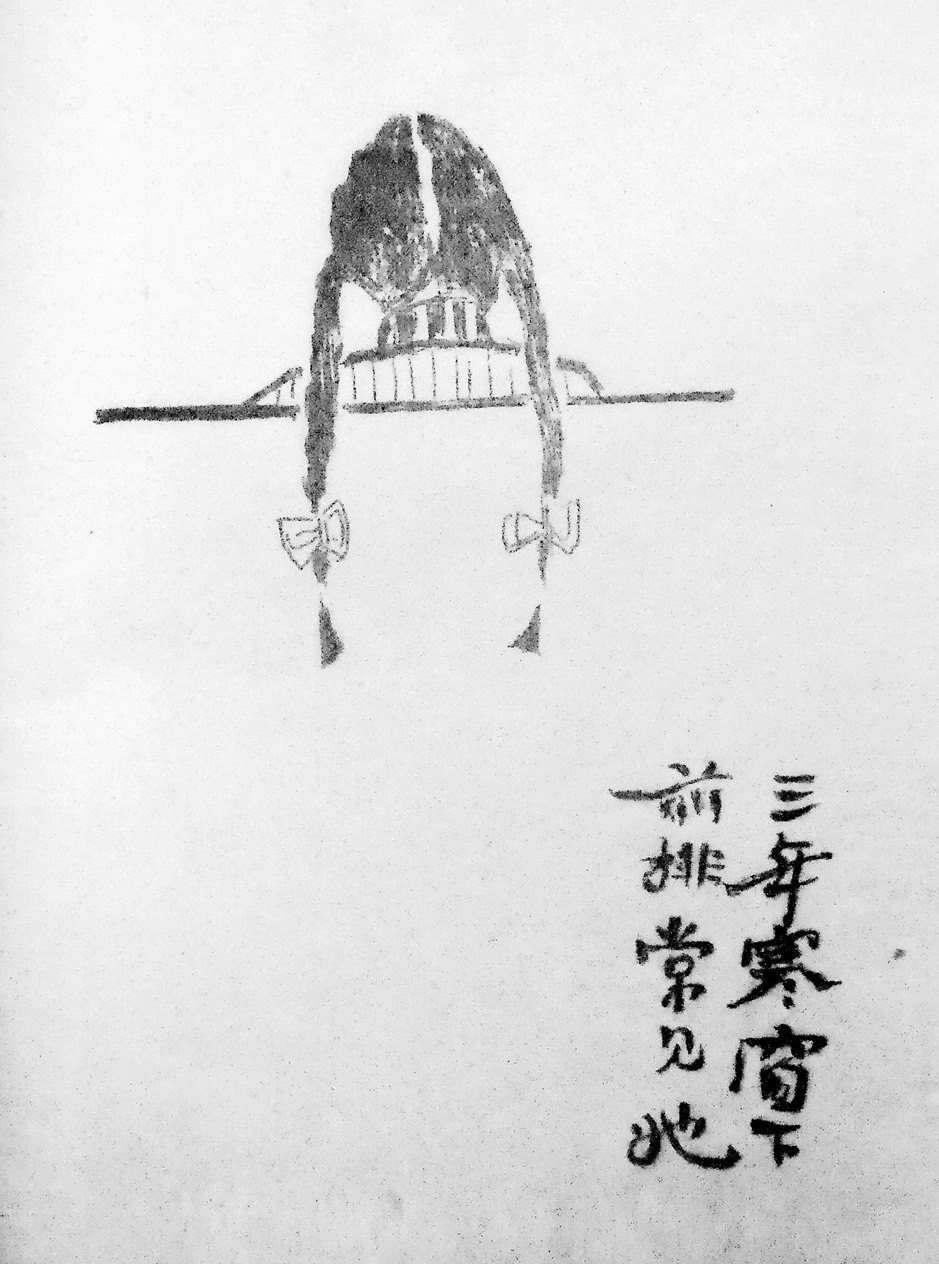 三年寒窗下
前排常见她